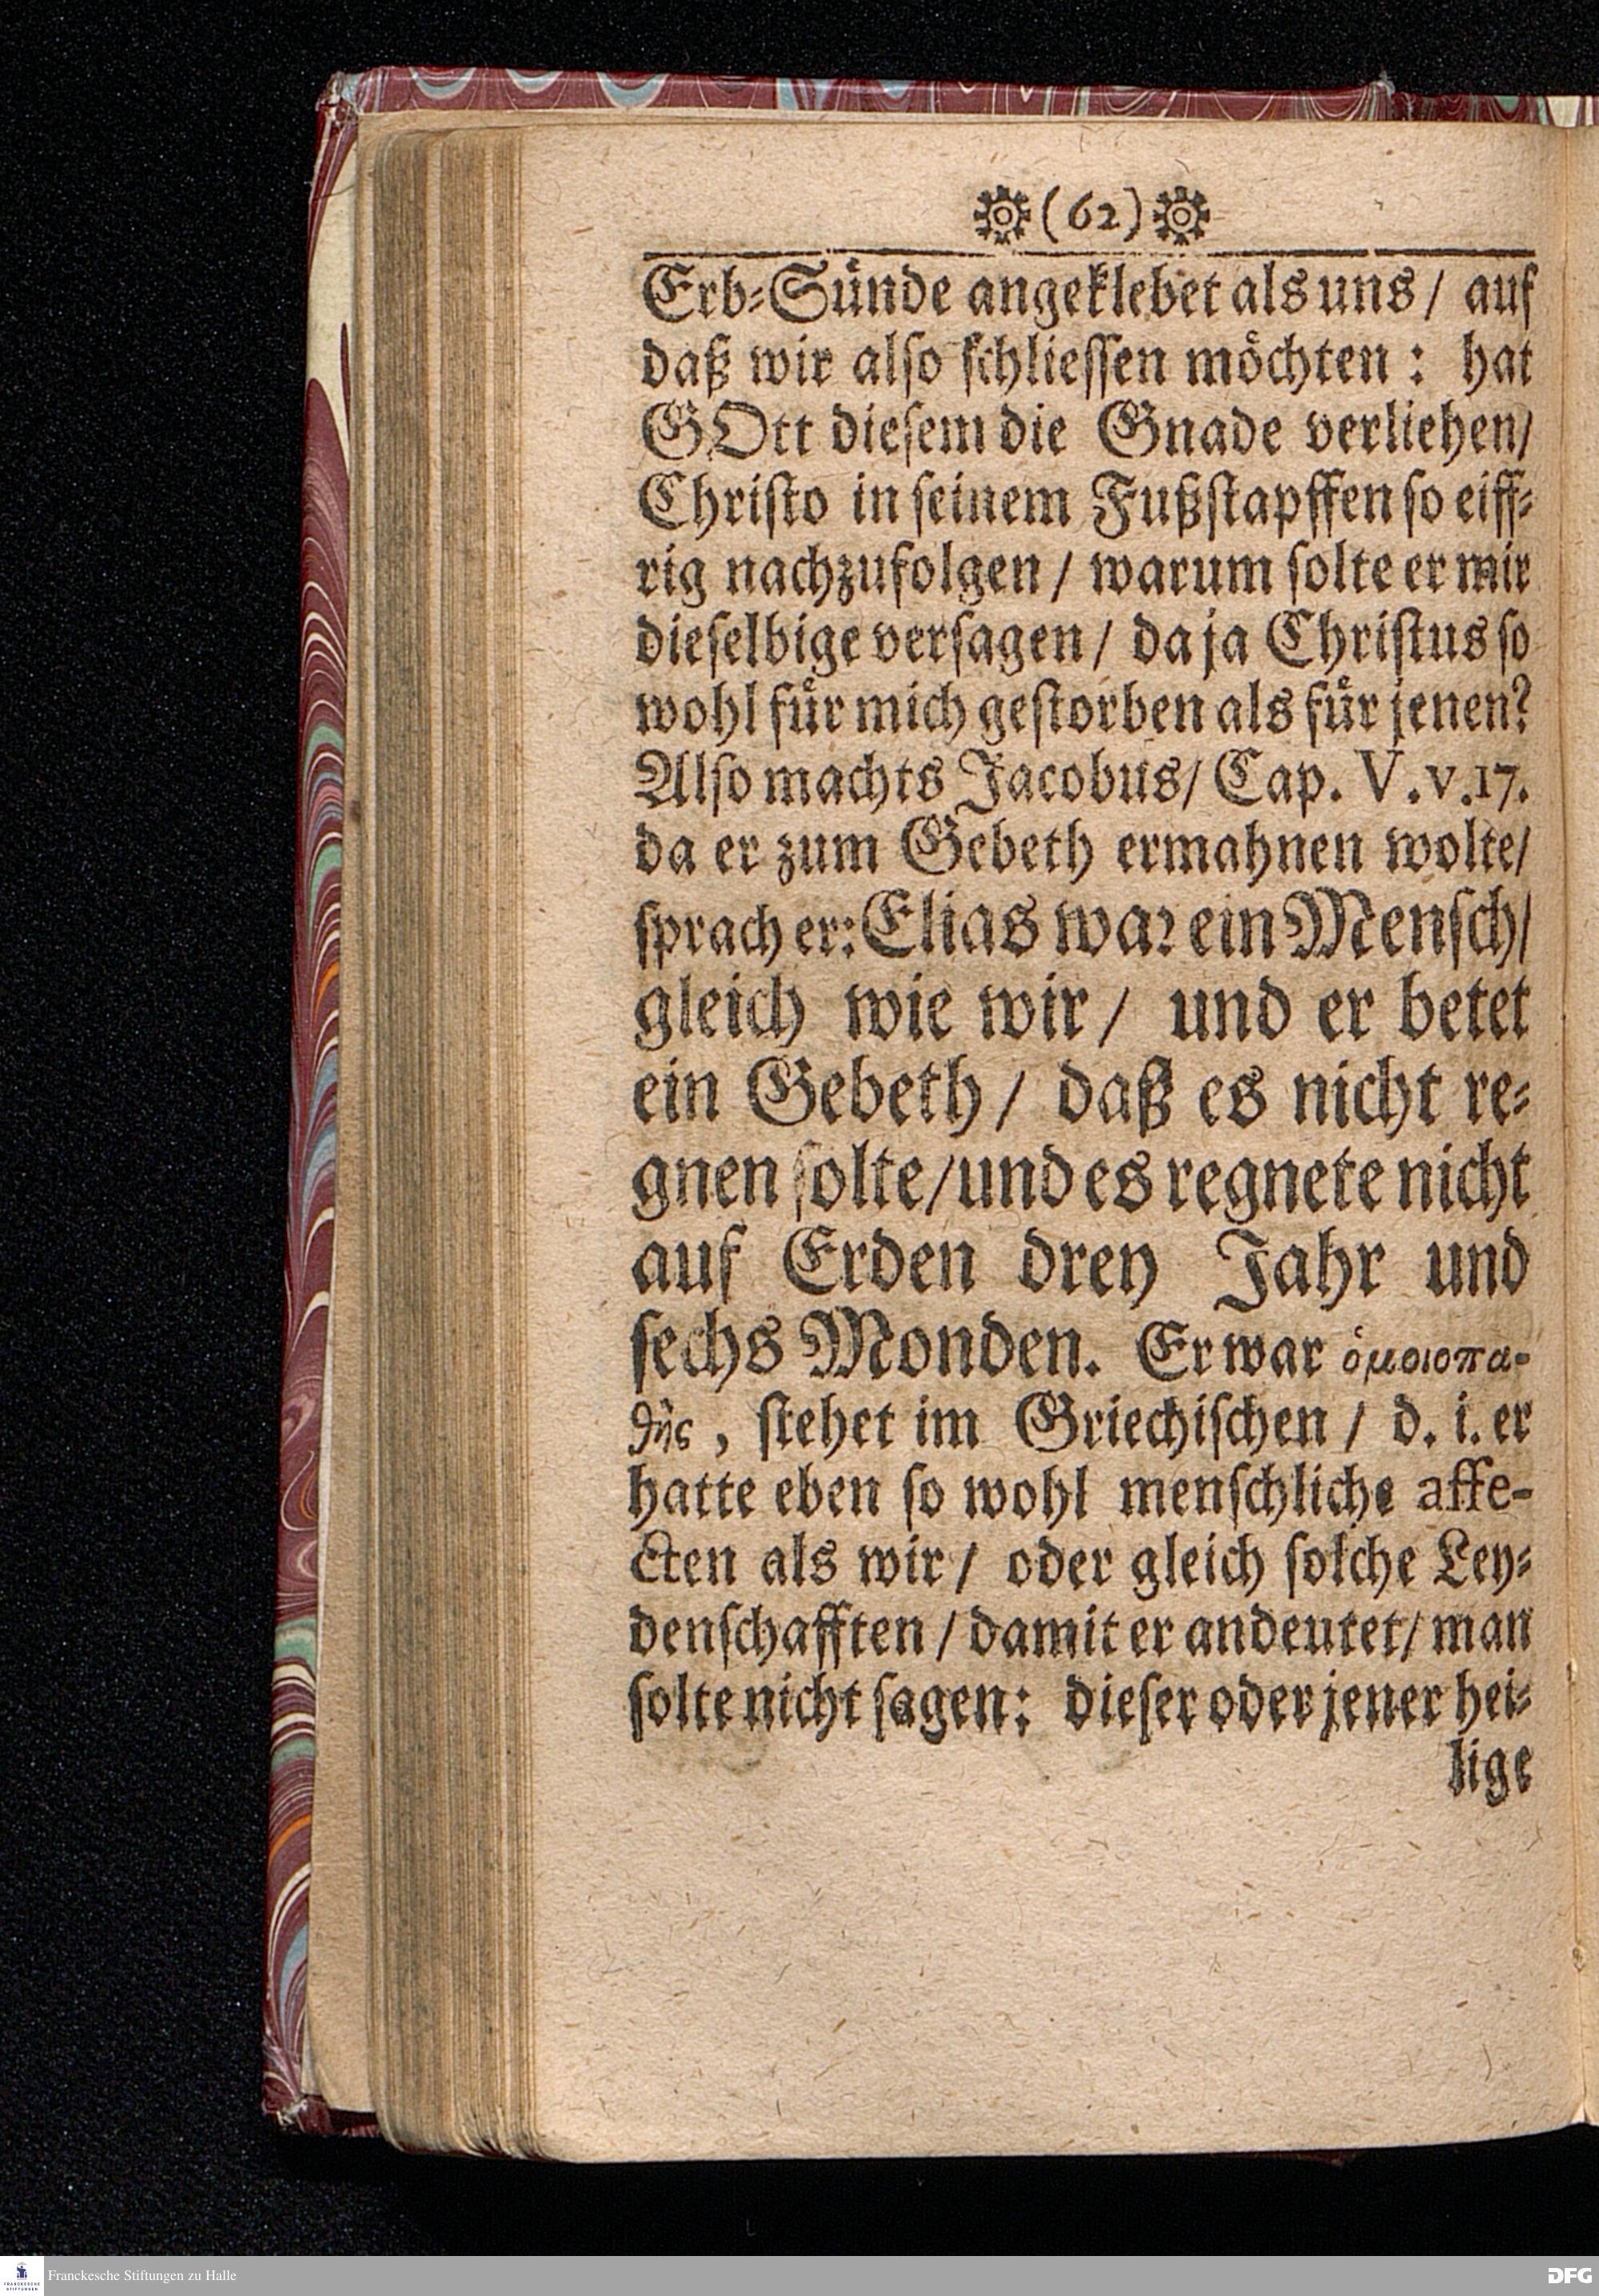 (62)
Erb-Sünde angeklebet als uns / auf
daß wir also schliessen möchten: hat
GOtt diesem die Gnade verliehen/
Christo in seinem Fußstapffen so eiff-
rig nachzufolgen / warum solte er mir
dieselbige versagen / da ja Christus so
wohl für mich gestorben als für jenen?
Also machts Jacobus/ Cap. V. v. 17.
da er zum Gebeth ermahnen wolte/
sprach er: Elias war ein Mensch/
gleich wie wir / und er betet
ein Gebeth / daß es nicht re-
gnen solte/und es regnete nicht
auf Erden drey Jahr und
sechs Monden. Er war ὁμοιοπα-
θὴς, stehet im Griechischen / d. i. er
hatte eben so wohl menschliche affe-
cten als wir / oder gleich solche Ley-
denschafften / damit er andeutet/ man
solte nicht sagen: dieser oder jener hei-
lige
FRANCKESCHE STIFTUNGEN
Franckesche Stiftungen zu Halle
DFG